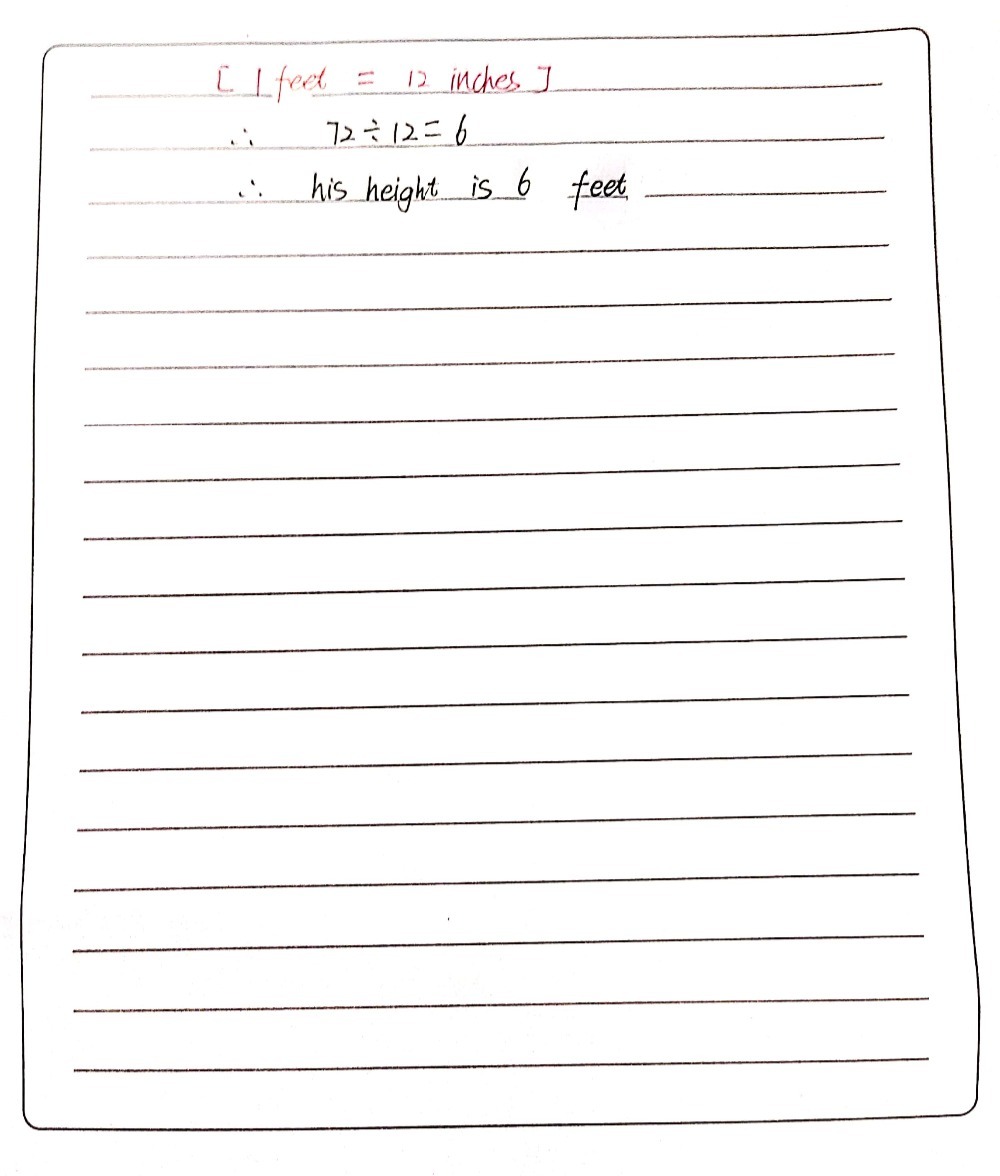 [ 1 feet = 12 inches ]
∴ 72 ÷ 12 = 6
∴ his height is 6 feet